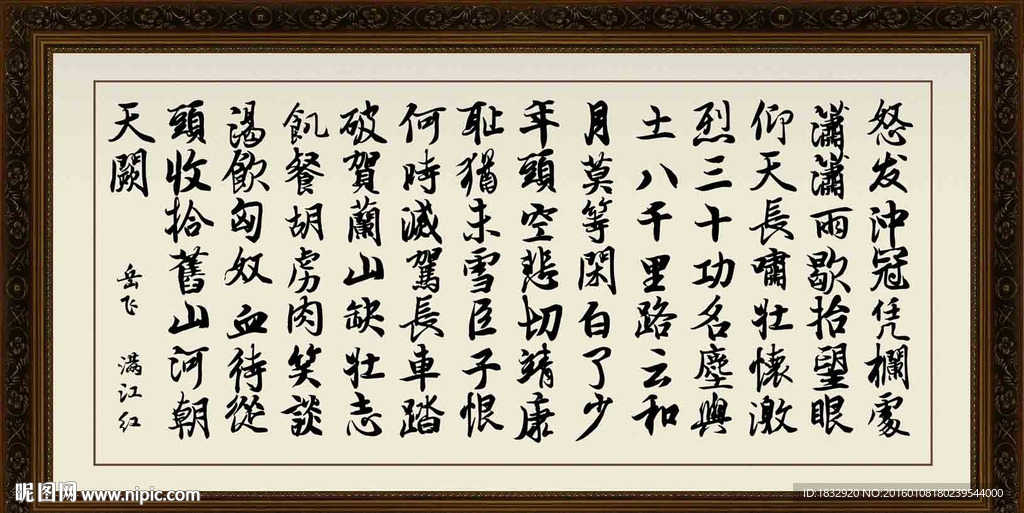 怒发冲冠凭欄處
瀟瀟雨歇抬望眼
仰天長嘯壯懷激
烈三十功名塵與
土八千里路云和
月莫等閑白了少
年頭空悲切靖康
耻猶未雪臣子恨
何時滅駕長車踏
破賀蘭山缺壯志
飢餐胡虜肉笑談
渴飲匈奴血待從
頭收拾舊山河朝
天闕 岳飞 满江红
昵图网 www.nipic.com
ID:1832920 NO:20160108180239544000